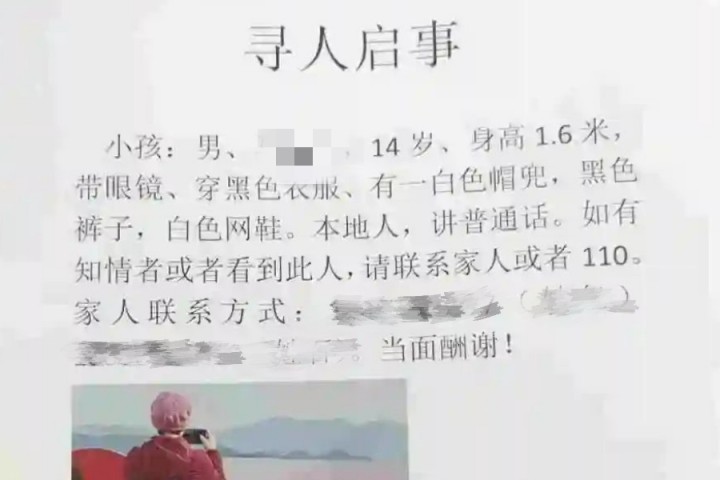 寻人启事
小孩：男、 14 岁、身高 1.6 米，
带眼镜、穿黑色衣服、有一白色帽兜，黑色
裤子，白色网鞋。本地人，讲普通话。如有
知情者或者看到此人，请联系家人或者 110。
家人联系方式：
当面酬谢！